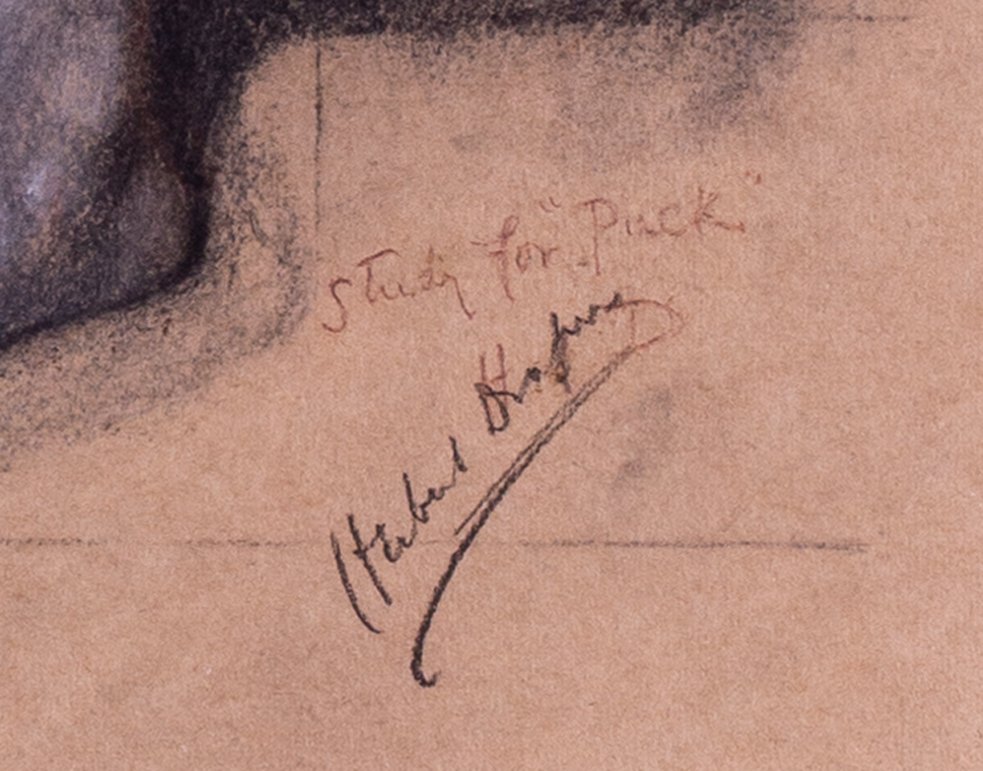 Study for "Puck"
Herbert